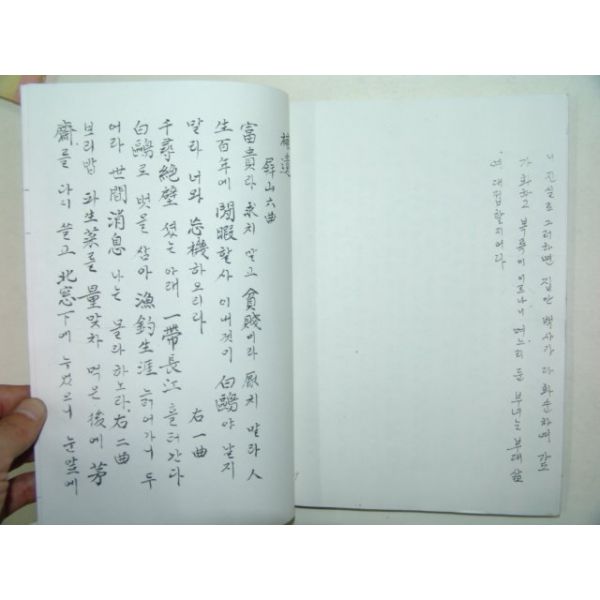 니 진실로 그러하면 집안 백사가 다 화순하며 가도
가 화하고 이르나니 며느리 둔 부녀는 부대 삼
여 대접할지어다.
屛山六曲
富貴라 求치 말고 貧賤이라 厭치 말라 人
生百年에 閒暇할사 이내것이 白鷗야 날지
말라 너와 忘機하오리라 右一曲
千尋絶壁 셨는 아래 一帶長江 흘터간다
白鷗로 벗을 삼아 漁釣生涯 늙어가니 두
어라 世間消息 나는 몰라 하노라. 右二曲
보리밥 파生菜를 量맞차 먹은 後에 茅
齋를 다시 쓸고 北窓下에 누었으니 눈앞에